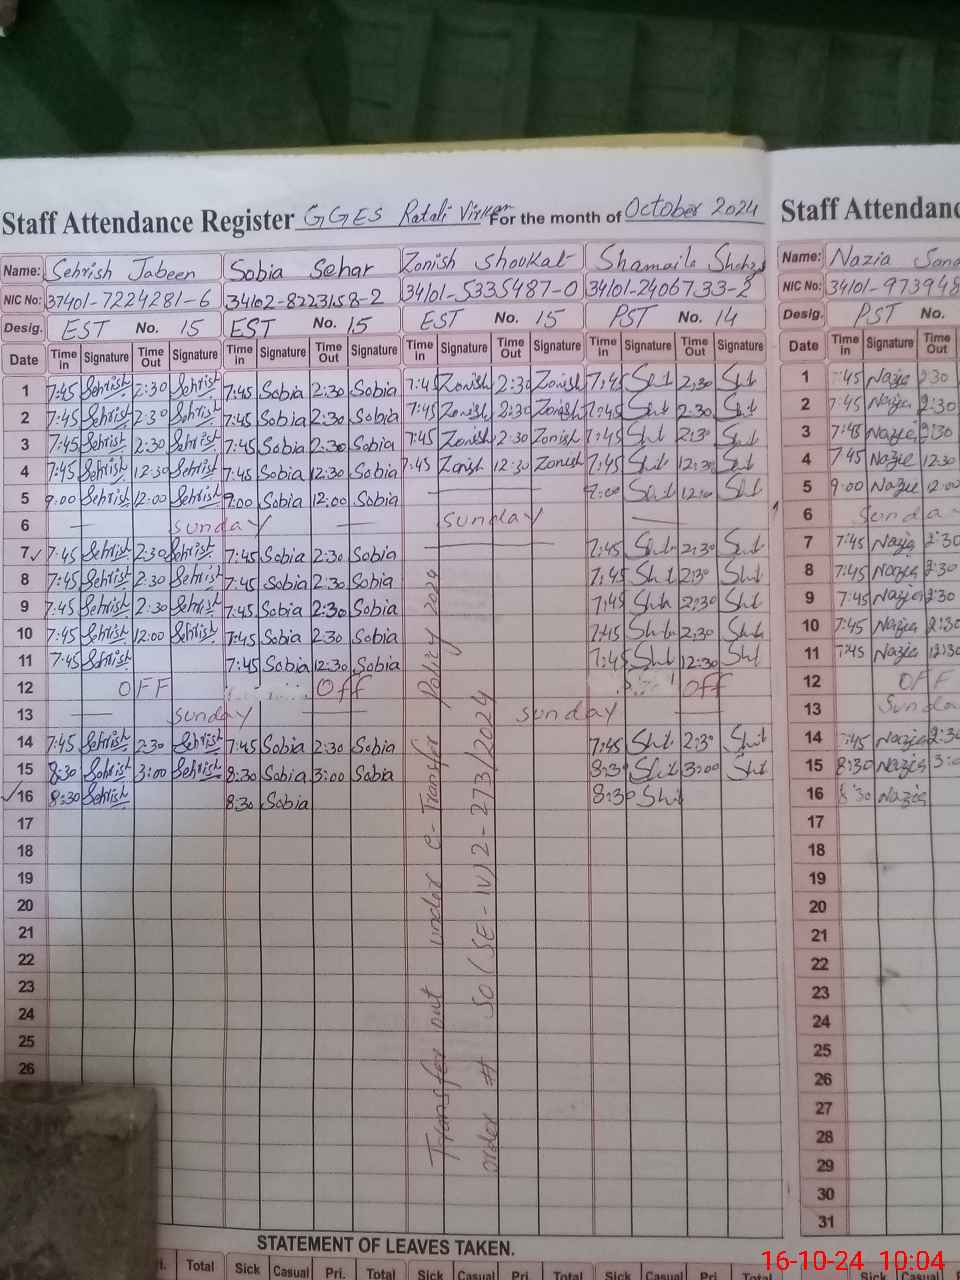 Staff Attendance Register GGES Ratali Virkan For the month of October 2024 Staff Attendanc
Name: Sehrish Jabeen Sobia Sehar Zonish Shoukat Shamaila Name: Nazia
NIC No: 37401-7224281-6 34102-8223158-2 34101-5335487-0 34101-2406733-2 NIC No: 34101-973948
Desig. EST No. 15 EST No. 15 EST No. 15 PST No. 14 Desig. PST No.
Date Time in Signature Time Out Signature Time in Signature Time Out Signature Time in Signature Time Out Signature Time in Signature Time Out Signature Date Time in Signature Time Out
1 7:45 Sehrish 2:30 Sehrish 7:45 Sobia 2:30 Sobia 7:45 Zonish 2:30 Zonish 7:45 Sht 2:30 Sht 1 7:45 Nazia 2:30
2 7:45 Sehrish 2:30 Sehrish 7:45 Sobia 2:30 Sobia 7:45 Zonish 2:30 Zonish 7:45 Sht 2:30 Sht 2 7:45 Nazia 2:30
3 7:45 Sehrish 2:30 Sehrish 7:45 Sobia 2:30 Sobia 7:45 Zonish 2:30 Zonish 7:45 Sht 2:30 Sht 3 7:45 Nazia 2:30
4 7:45 Sehrish 12:30 Sehrish 7:45 Sobia 12:30 Sobia 7:45 Zonish 12:30 Zonish 7:45 Sht 12:30 Sht 4 7:45 Nazia 12:30
5 9:00 Sehrish 12:00 Sehrish 9:00 Sobia 12:00 Sobia 9:00 Sht 12:00 Sht 5 9:00 Nazia 12:00
6 Sunday Sunday 6 Sunda
7 7:45 Sehrish 2:30 Sehrish 7:45 Sobia 2:30 Sobia 7:45 Sht 2:30 Sht 7 7:45 Nazia 2:30
8 7:45 Sehrish 2:30 Sehrish 7:45 Sobia 2:30 Sobia 7:45 Sht 2:30 Sht 8 7:45 Nazia 2:30
9 7:45 Sehrish 2:30 Sehrish 7:45 Sobia 2:30 Sobia 7:45 Sht 2:30 Sht 9 7:45 Nazia 2:30
10 7:45 Sehrish 12:00 Sehrish 7:45 Sobia 2:30 Sobia 7:45 Sht 2:30 Sht 10 7:45 Nazia 2:30
11 7:45 Sehrish 7:45 Sobia 12:30 Sobia 7:45 Sht 12:30 Sht 11 7:45 Nazia 12:30
12 OFF Off Off 12 OFF
13 Sunday Sunday 13 Sunda
14 7:45 Sehrish 2:30 Sehrish 7:45 Sobia 2:30 Sobia 7:45 Sht 2:30 Sht 14 7:45 Nazia 2:30
15 8:30 Sehrish 3:00 Sehrish 8:30 Sobia 3:00 Sobia 8:30 Sht 3:00 Sht 15 8:30 Nazia 3:0
16 8:30 Sehrish 8:30 Sobia 8:30 Sht 16 8:30 Nazia
17 17
18 18
19 19
20 20
21 21
22 22
23 23
24 24
25 25
26 26
27
28
29
30
31
Transfer out under e-Transfer Policy 2024
order # SO(SE-IV)2-273/2024
STATEMENT OF LEAVES TAKEN.
Pri. Total Sick Casual Pri. Total Sick Casual Pri. Total Sick Casual Pri. Total Sick Casual
16-10-24 10:04